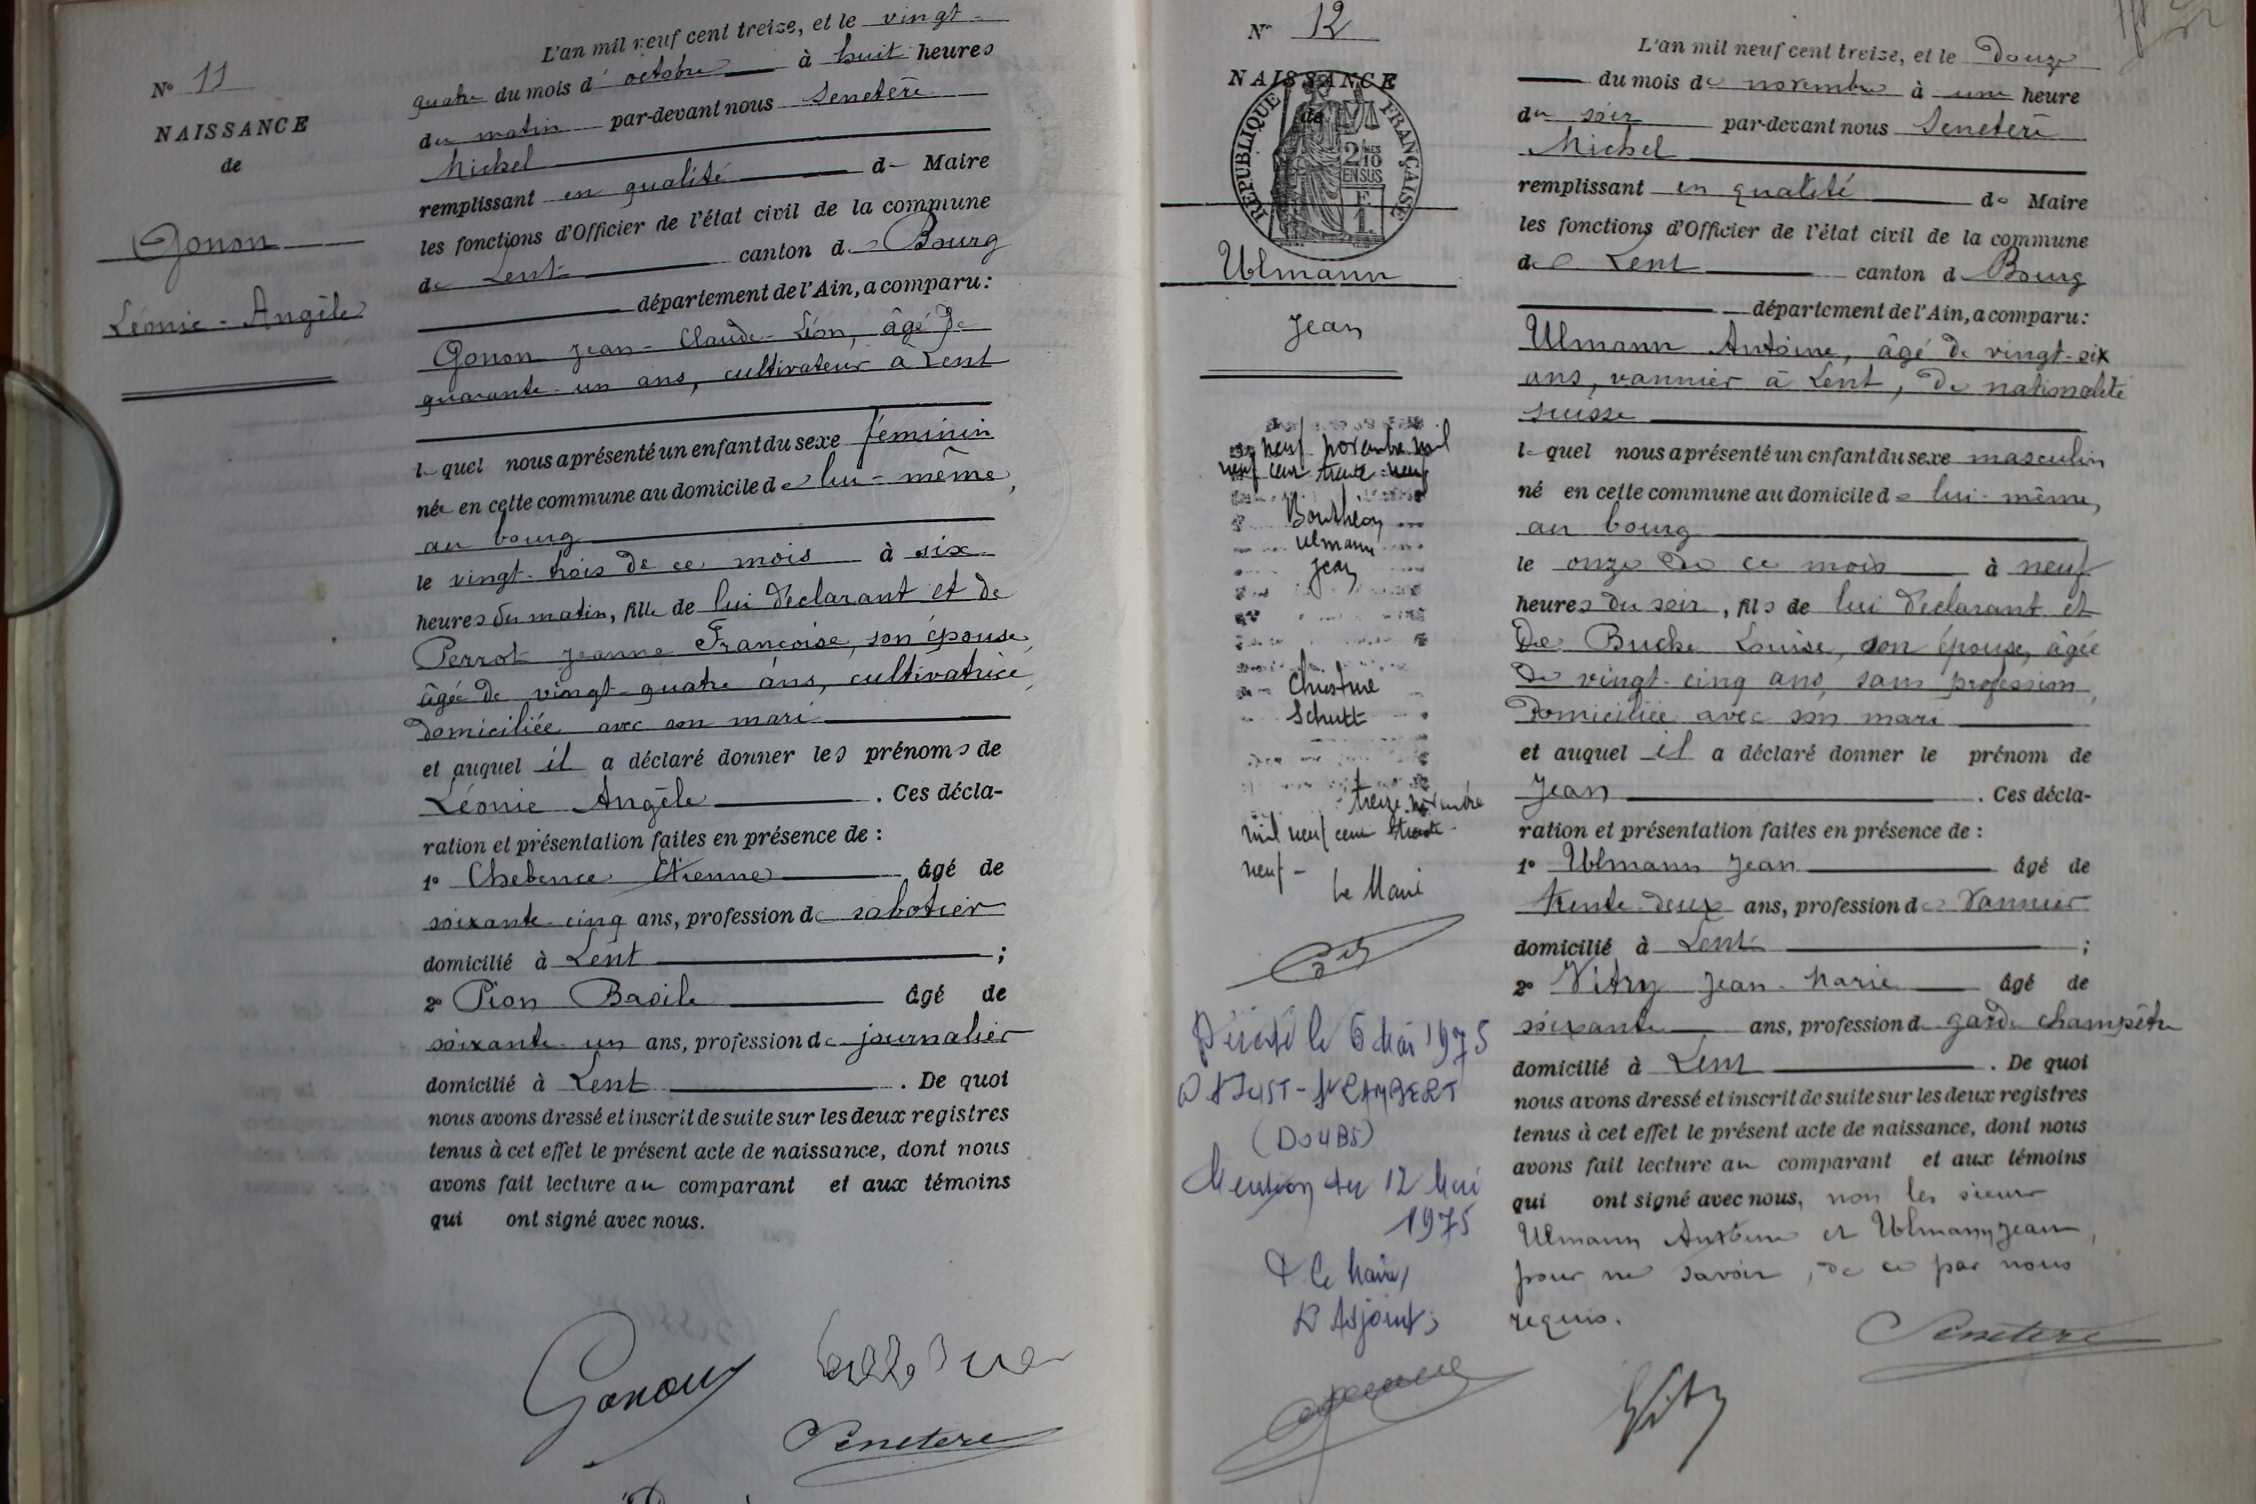 N° 11
NAISSANCE
de
Gonon
Léonie-Angèle
L'an mil neuf cent treize, et le vingt-
quatre du mois d'octobre à huit heures
du matin par-devant nous Senetère
Michel
remplissant en qualité de Maire
les fonctions d'Officier de l'état civil de la commune
de Lent canton de Bourg
département de l'Ain, a comparu:
Gonon Jean-Claude-Léon, âgé de
quarante-un ans, cultivateur à Lent
lequel nous a présenté un enfant du sexe féminin
née en cette commune au domicile de lui-même,
au bourg
le vingt-trois de ce mois à six
heures du matin, fille de lui déclarant et de
Perrot Jeanne Françoise, son épouse,
âgée de vingt-quatre ans, cultivatrice,
domiciliée avec son mari
et auquel il a déclaré donner les prénoms de
Léonie Angèle . Ces décla-
ration et présentation faites en présence de :
1° Etienne âgé de
soixante-cinq ans, profession de sabotier
domicilié à Lent ;
2° Pion Basile âgé de
soixante-un ans, profession de journalier
domicilié à Lent . De quoi
nous avons dressé et inscrit de suite sur les deux registres
tenus à cet effet le présent acte de naissance, dont nous
avons fait lecture au comparant et aux témoins
qui ont signé avec nous.
Gonon
Senetere
N° 12
NAISSANCE
de
RÉPUBLIQUE FRANÇAISE
2/10
EN SUS
Ulmann
Jean
neuf novembre mil
neuf cent trente-neuf
Bouthéon
Ulmann
Jean
Christine
Schutt
treize novembre
mil neuf cent trente-
neuf -
Le Maire
Décédé le 6 Mai 1975
à St JUST-St RAMBERT
(DOUBS)
Mention du 12 Mai
1975
Le Maire,
L'Adjoint,
L'an mil neuf cent treize, et le douze
du mois de novembre à une heure
du soir par-devant nous Senetère
Michel
remplissant en qualité de Maire
les fonctions d'Officier de l'état civil de la commune
de Lent canton de Bourg
département de l'Ain, a comparu:
Ulmann Antoine, âgé de vingt-six
ans, vannier à Lent, de nationalité
suisse
lequel nous a présenté un enfant du sexe masculin
né en cette commune au domicile de lui-même,
au bourg
le onze de ce mois à neuf
heures du soir, fils de lui déclarant et
de Buche Louise, son épouse, âgée
de vingt-cinq ans, sans profession,
domiciliée avec son mari
et auquel il a déclaré donner le prénom de
Jean . Ces décla-
ration et présentation faites en présence de :
1° Ulmann Jean âgé de
trente-deux ans, profession de vannier
domicilié à Lent ;
2° Vitry Jean-Marie âgé de
soixante ans, profession de garde champêtre
domicilié à Lent . De quoi
nous avons dressé et inscrit de suite sur les deux registres
tenus à cet effet le présent acte de naissance, dont nous
avons fait lecture au comparant et aux témoins
qui ont signé avec nous, non les sieurs
Ulmann Antoine et Ulmann Jean,
pour ne savoir, de ce par nous
requis.
Senetere
Vitry